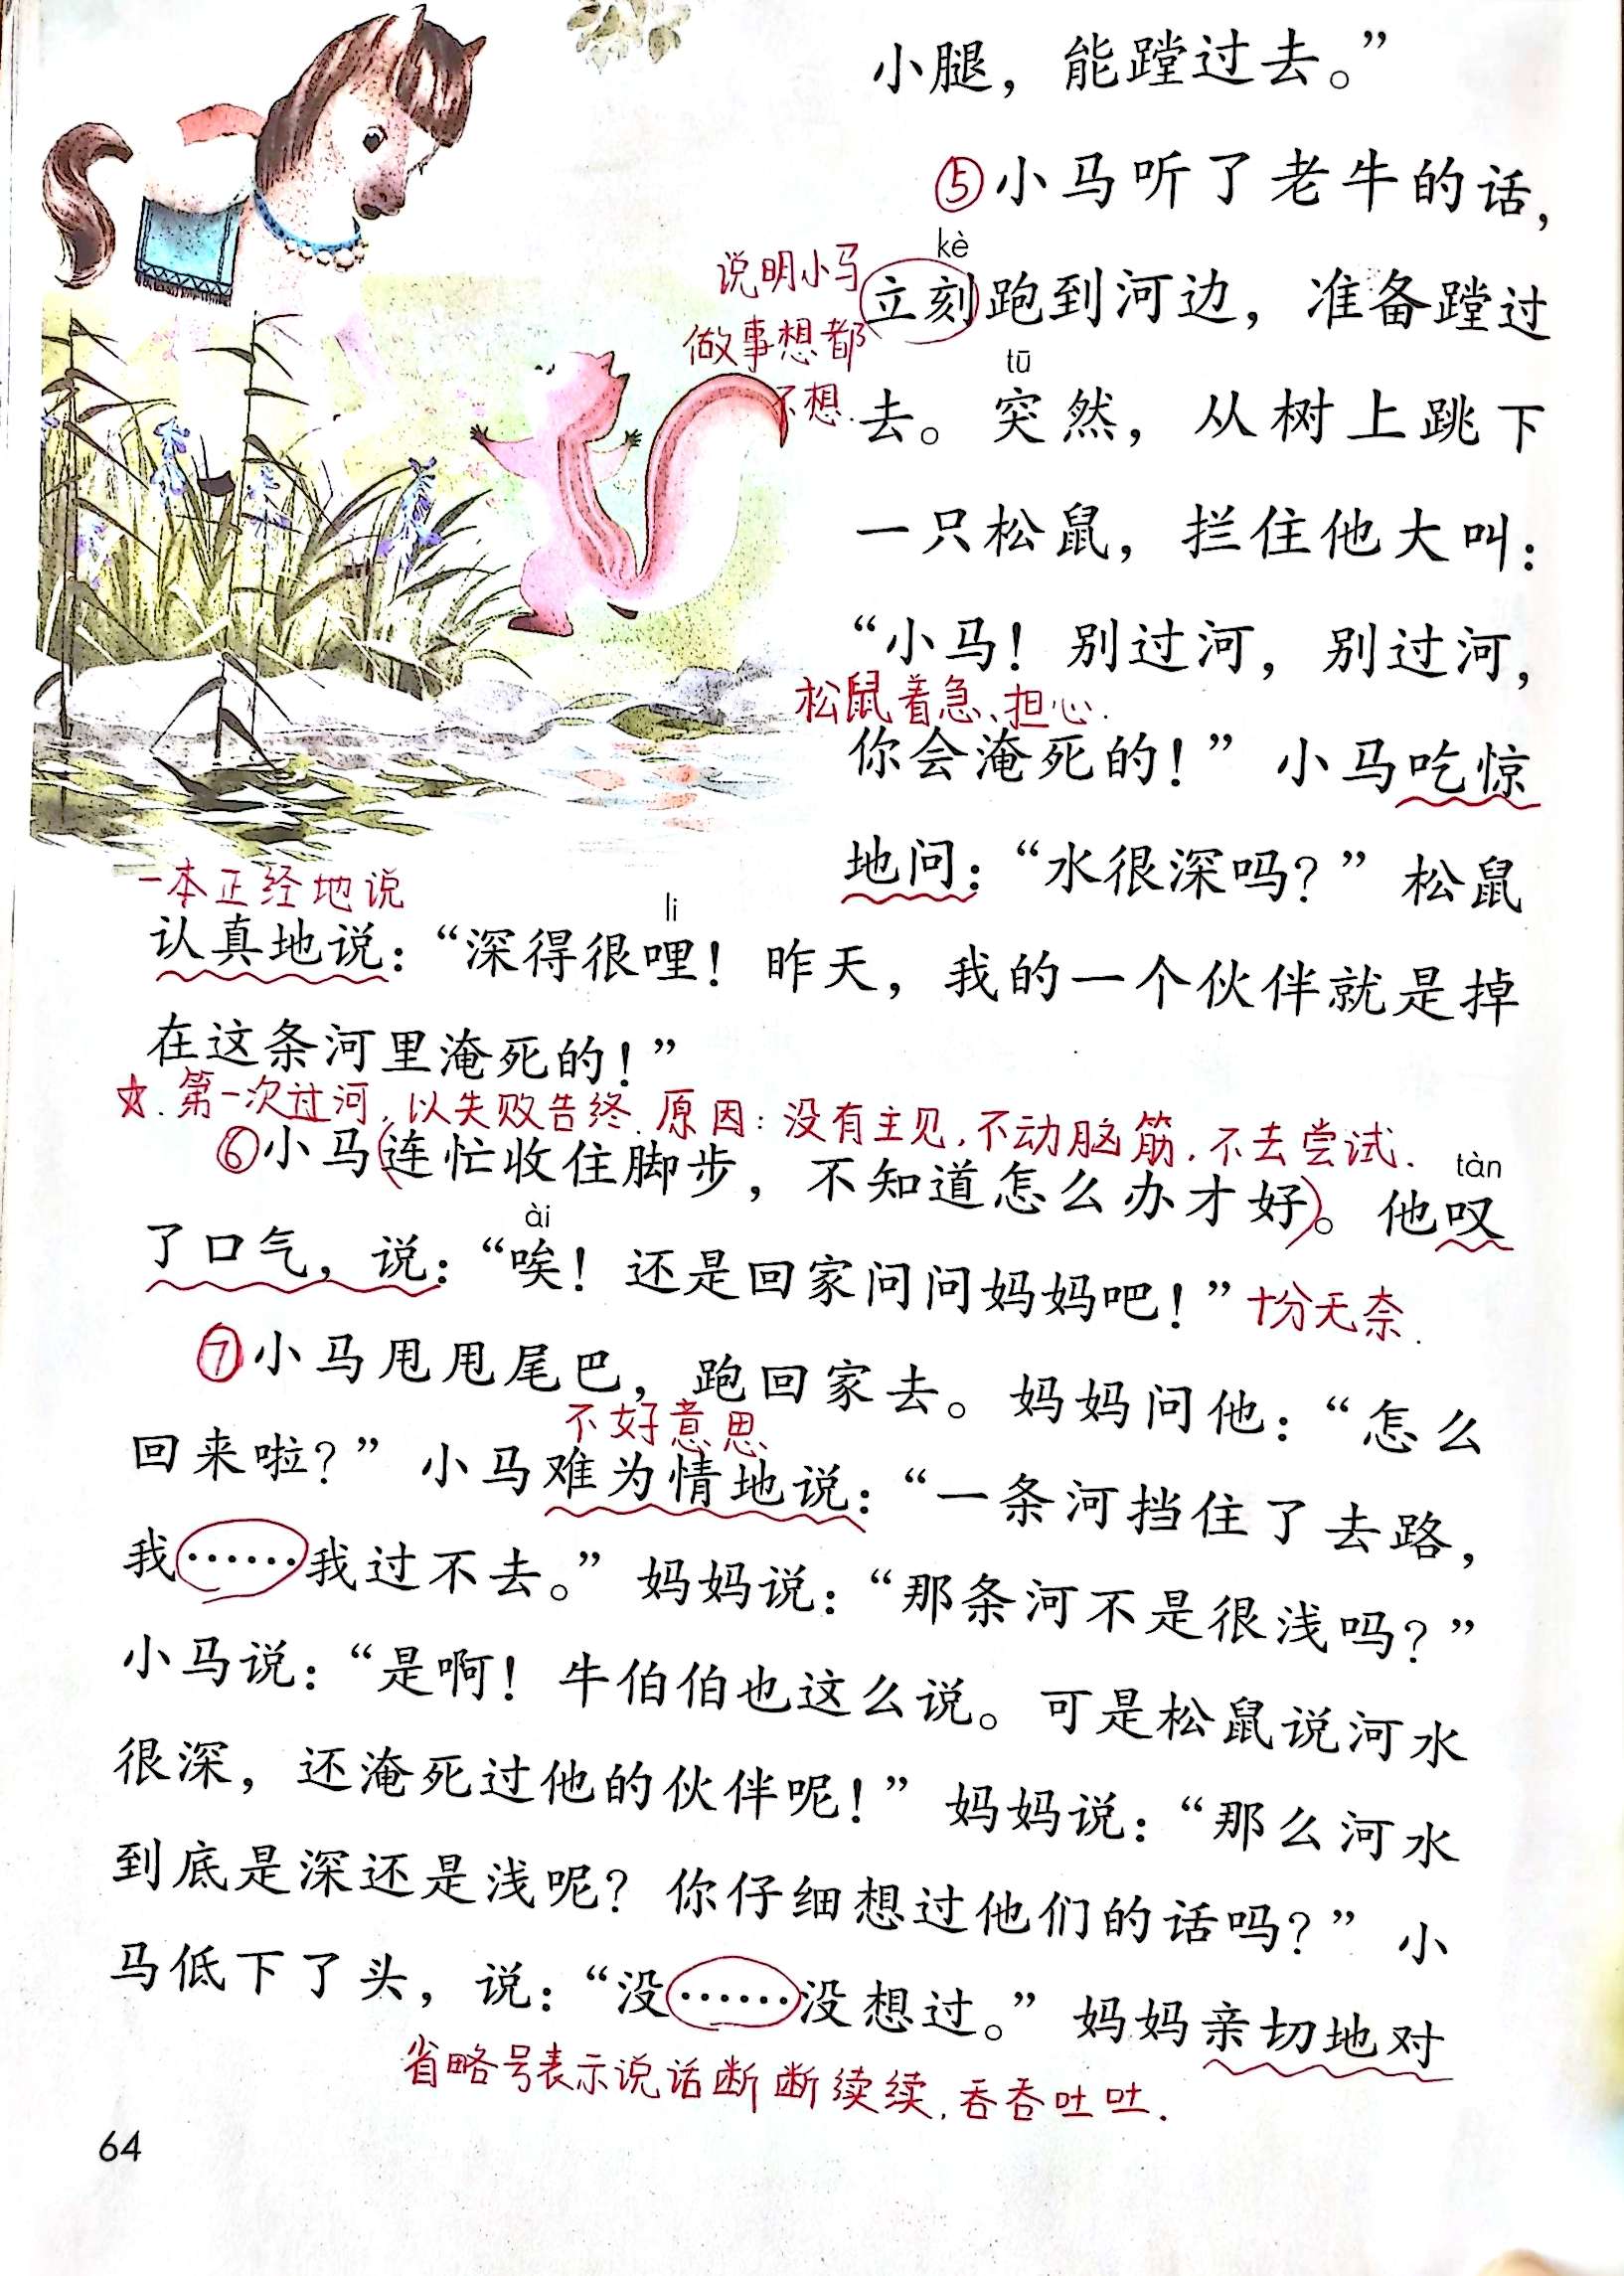 小腿，能蹚过去。”
⑤小马听了老牛的话，
kè
说明小马
立刻跑到河边，准备蹚过
做事想都
tū
不想.
去。突然，从树上跳下
一只松鼠，拦住他大叫：
“小马！别过河，别过河，
松鼠着急、担心.
你会淹死的！”小马吃惊
地问：“水很深吗？”松鼠
一本正经地说
li
认真地说：“深得很哩！昨天，我的一个伙伴就是掉
在这条河里淹死的！”
☆.第一次过河，以失败告终.原因：没有主见，不动脑筋，不去尝试.
⑥小马(连忙收住脚步，不知道怎么办才好)。他叹
tàn
ài
了口气，说：“唉！还是回家问问妈妈吧！”十分无奈.
⑦小马甩甩尾巴，跑回家去。妈妈问他：“怎么
不好意思
回来啦？”小马难为情地说：“一条河挡住了去路，
我……我过不去。”妈妈说：“那条河不是很浅吗？”
小马说：“是啊！牛伯伯也这么说。可是松鼠说河水
很深，还淹死过他的伙伴呢！”妈妈说：“那么河水
到底是深还是浅呢？你仔细想过他们的话吗？”小
马低下了头，说：“没……没想过。”妈妈亲切地对
省略号表示说话断断续续，吞吞吐吐.
64